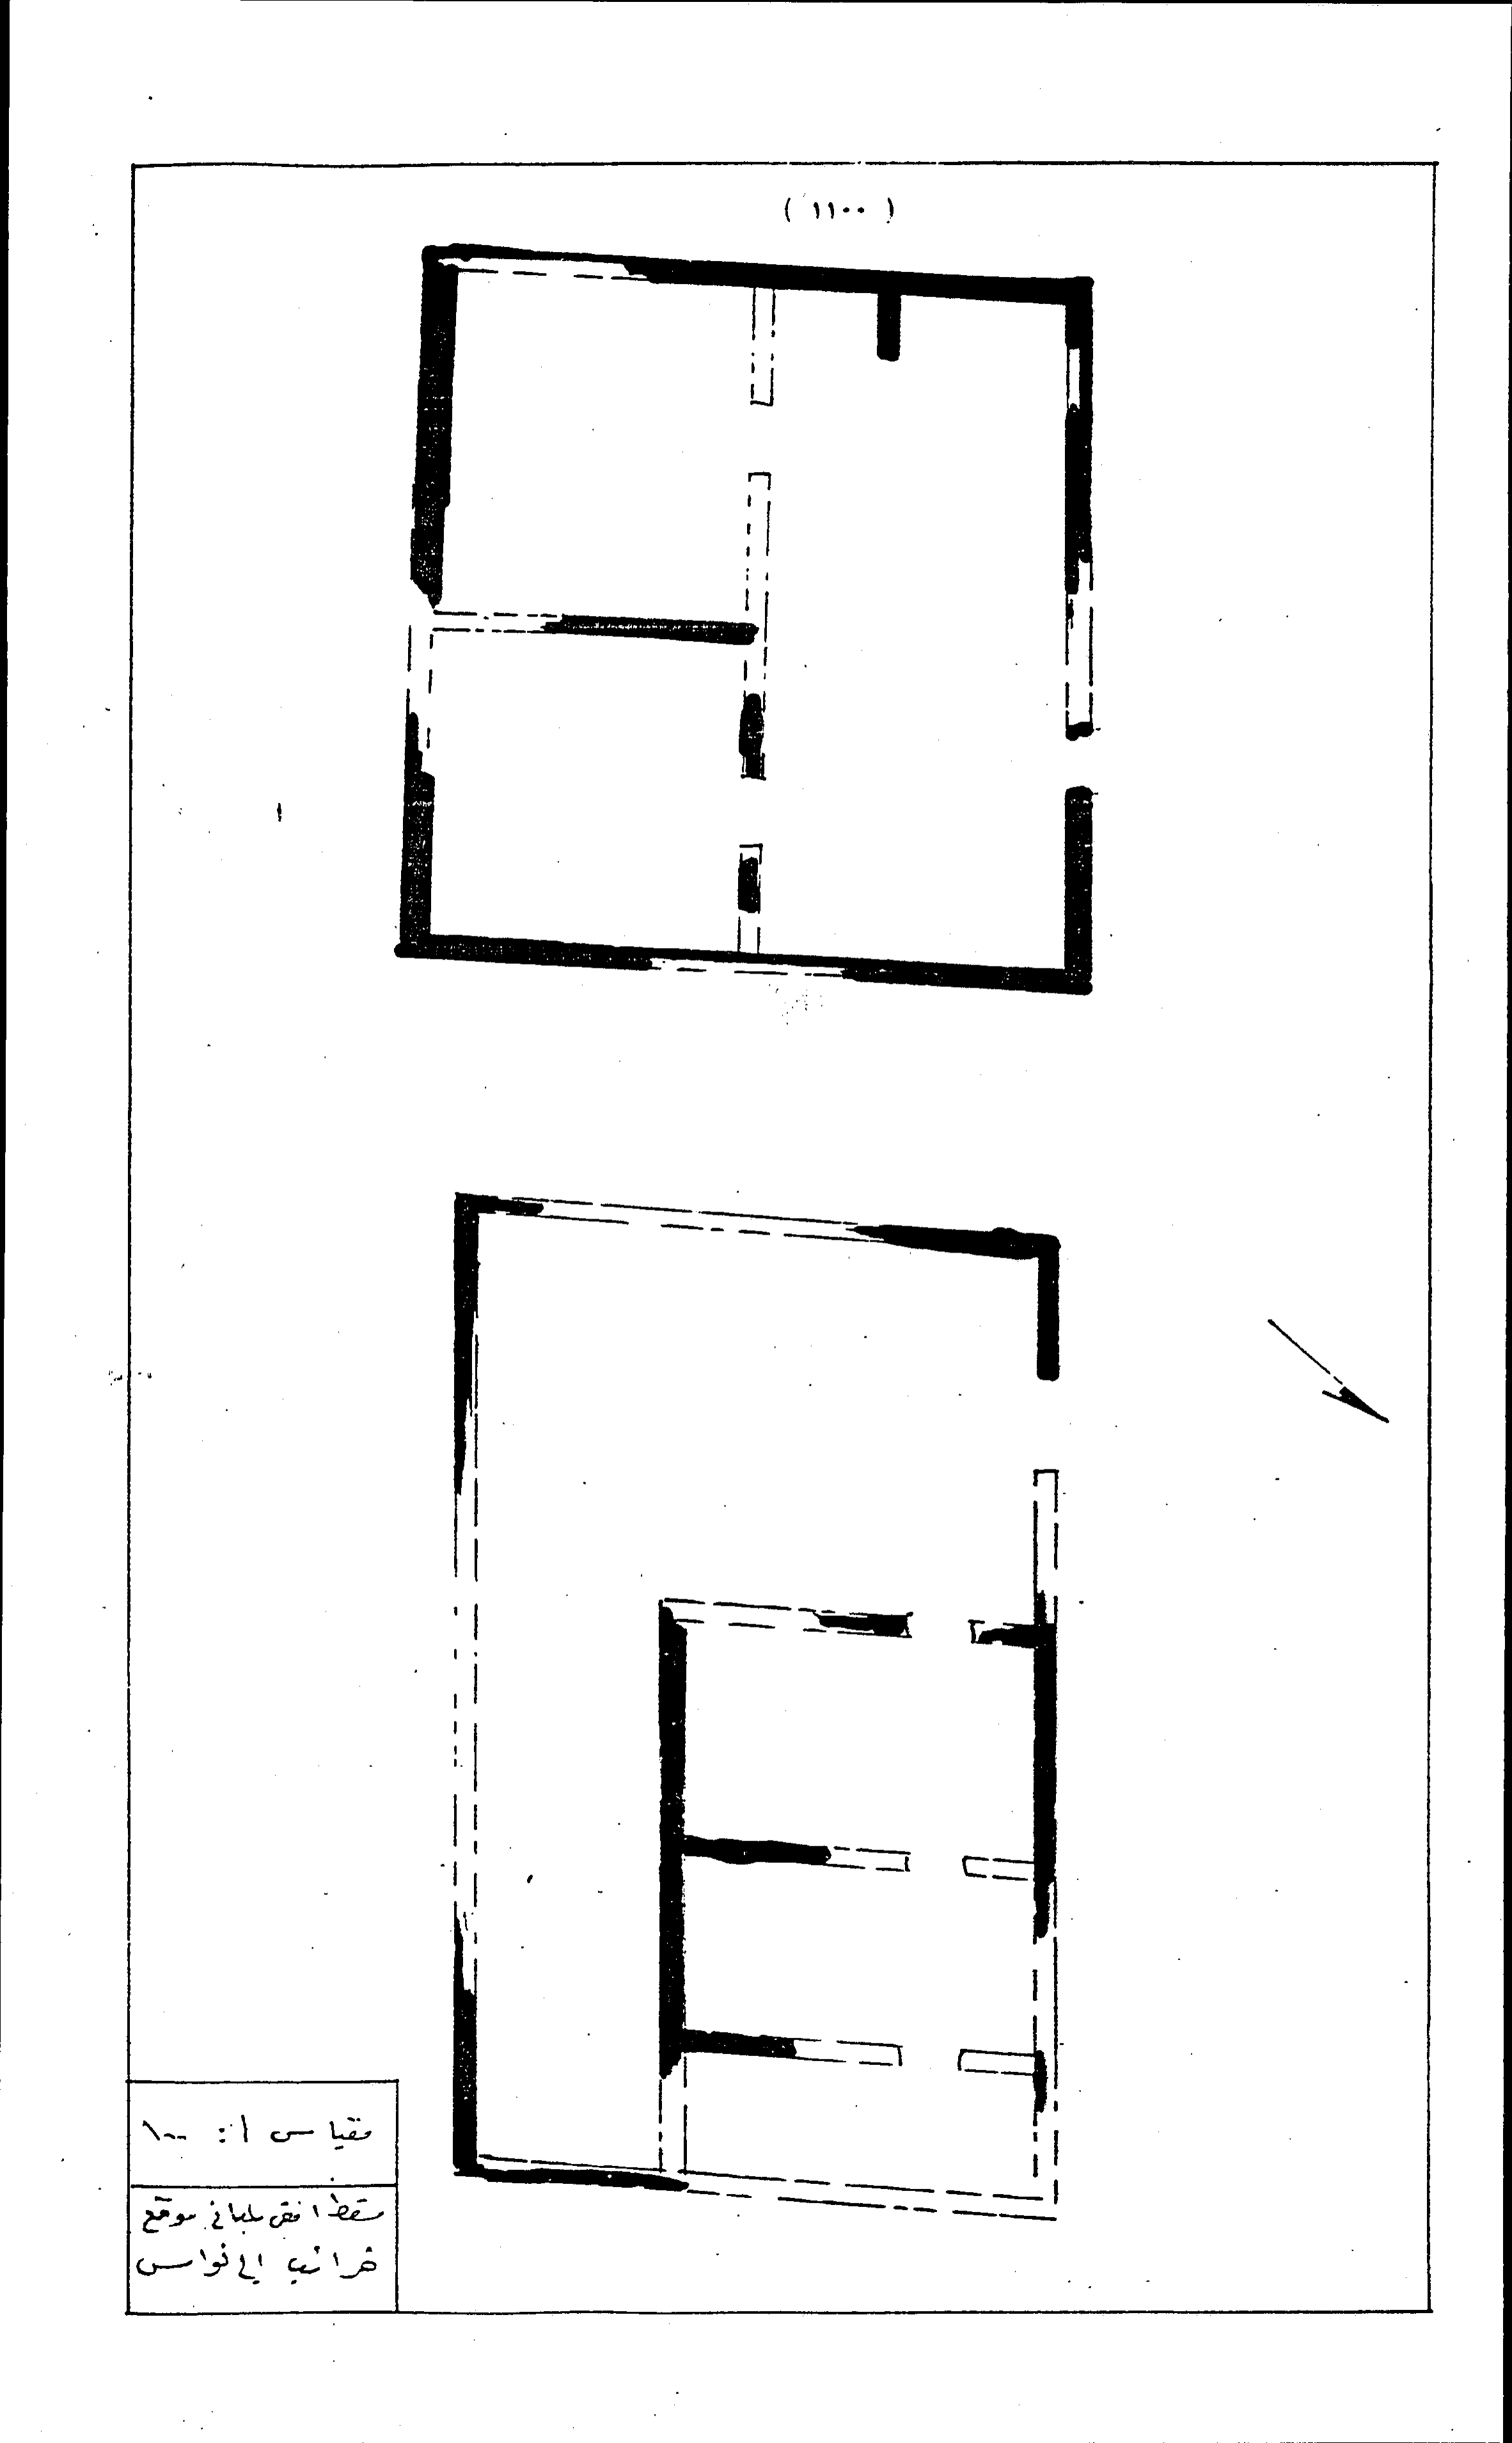 ( ١١٠٠ )
مقياس ١ : ١٠٠
مسقط افقي لمباني موقع
خرائب ابي نواس